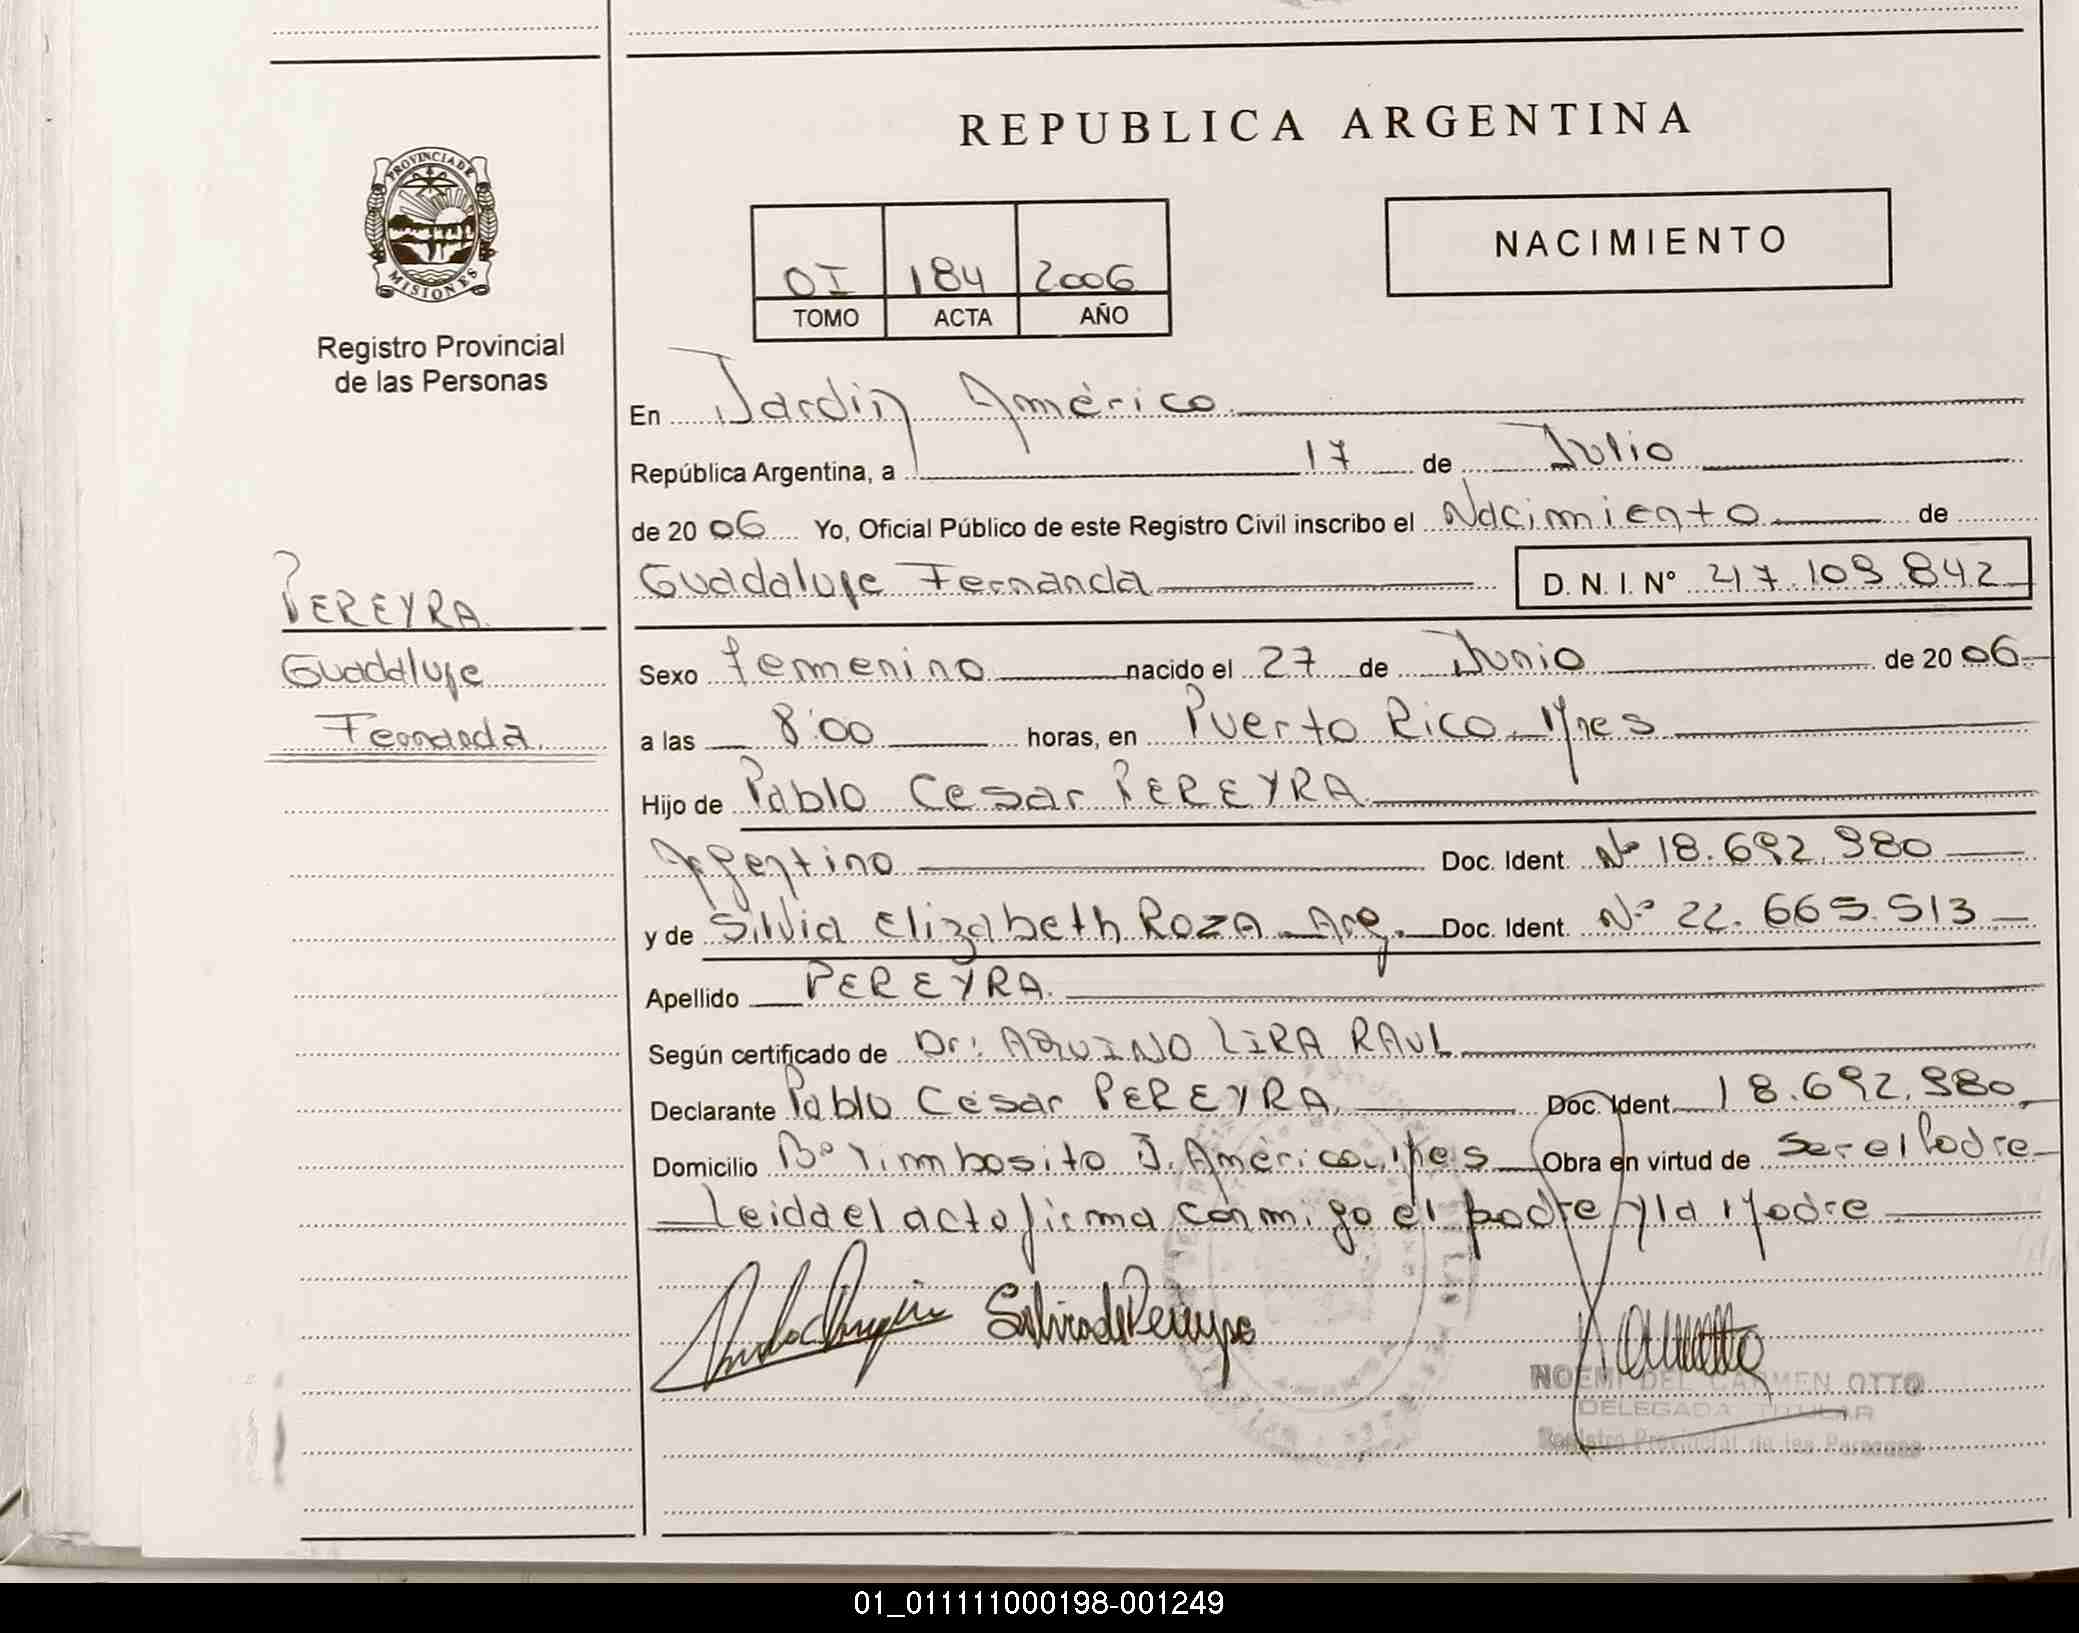 REPUBLICA ARGENTINA
PROVINCIA DE
MISIONES
Registro Provincial
de las Personas
NACIMIENTO
01 184 2006
TOMO ACTA AÑO
En Jardín América
República Argentina, a 17 de Julio
de 2006 Yo, Oficial Público de este Registro Civil inscribo el Nacimiento de
Guadalupe Fernanda D. N. I. Nº 47.109.842
PEREYRA
Guadalupe
Fernanda
Sexo femenino nacido el 27 de Junio de 2006
a las 8:00 horas, en Puerto Rico, Mnes
Hijo de Pablo Cesar PEREYRA
Argentino Doc. Ident. Nº 18.692.980
y de Silvia Elizabeth ROZA Arg. Doc. Ident. Nº 22.665.513
Apellido PEREYRA
Según certificado de Dr: AQUINO LIRA RAUL
Declarante Pablo César PEREYRA Doc. Ident. 18.692.980
Domicilio Bº Timbosito J. América Mnes Obra en virtud de ser el Padre
Leida el acta firma conmigo el padre y la Madre
NOEMI DEL CARMEN OTTO
DELEGADA TITULAR
Registro Provincial de las Personas
01_011111000198-001249